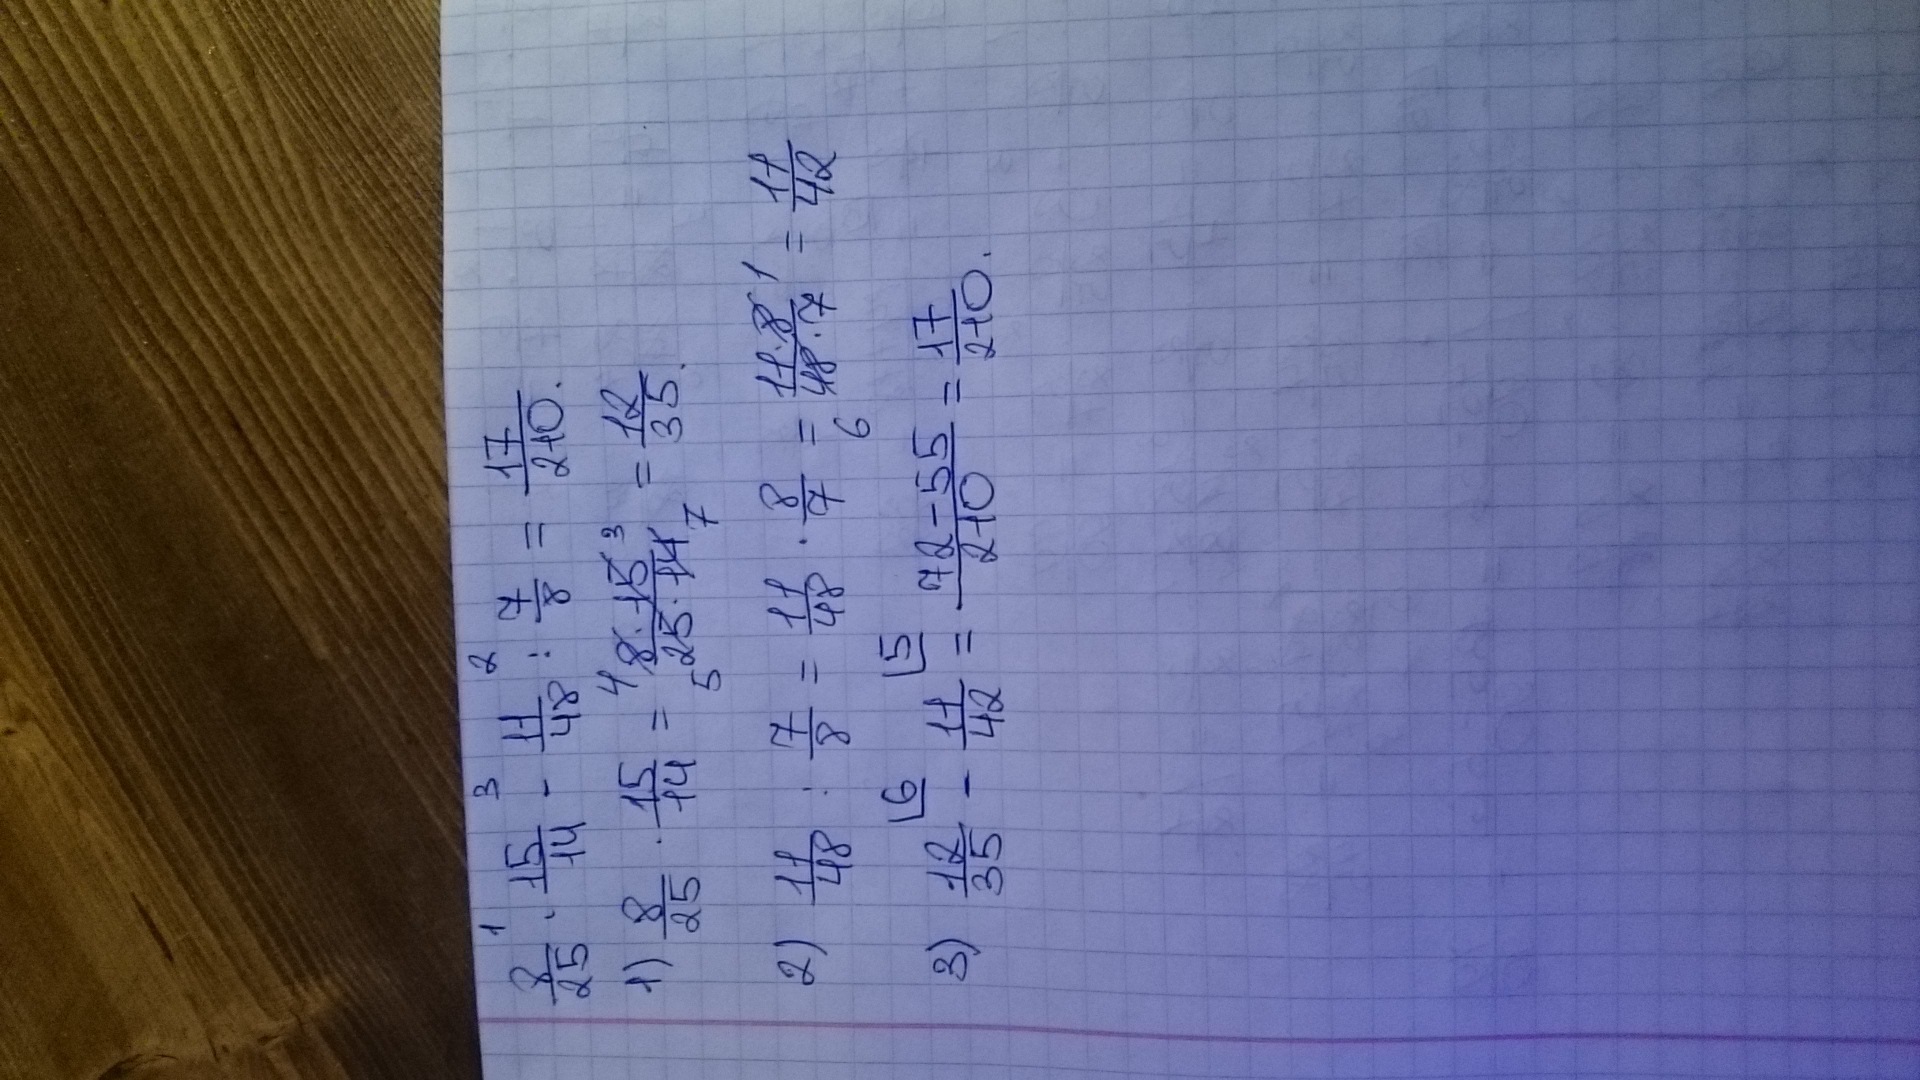 8/25 · 15/14 - 11/48 : 7/8 = 17/210.
1 3 2
1) 8/25 · 15/14 = 8·15/25·14 = 12/35.
4 3 5 7
2) 11/48 : 7/8 = 11/48 · 8/7 = 11·8/48·7 = 11/42
1 6
3) 12/35 - 11/42 = 72-55/210 = 17/210.
6 5